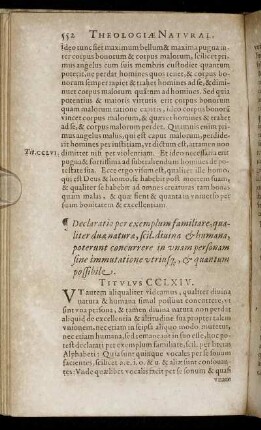 552 THEOLOGIAE NATVRAL.
Ideo tunc siet maximum bellum & maxima pugna in
ter corpus bonorum & corpus malorum, scilicet pri
mus angelus cum suis membris custodiet quantum
poterit, ne perdat homines quos tenet, & corpus bo-
norum semper rapiet & trahet homines ad se, & dimi-
nuet corpus malorum quantum ad homines. Sed quia
potentius & maioris virtutis erit corpus bonorum
quam malorum ratione capitis, ideo corpus bonorum
vincet corpus malorum, quia homines quæret & trahet
ad se, & corpus malorum perdet. Quamuis enim pri
mus angelus malus, qui est caput malorum, posside-
rit homines per iustitiam, vt dictum est, attamen non
Tit.CCLVI. dimittet nisi per violentiam. Et ideo necessaria est
pugna & fortissima ad subtrahendum homines de po-
testate sua. Ecce ergo visum est, qualiter ille homo,
qui est Deus & homo, se habebit post mortem suam,
& qualiter se habebit ad omnes creaturas tam bonas
quam malas, & quæ fient & quanta in vniuerso per
suam bonitatem & excellentiam.
¶ Declaratio per exemplum familiare, qua-
liter duæ naturæ, scil. diuina & humana,
poterunt concurrere in vnam personam
sine immutatione vtriusq;, & quantum
possibile.
TITVLVS CCLXIV.
VT autem aliqualiter videamus, qualiter diuina
natura & humana simul possunt conuenire, vt
sint vna persona, & tamen diuina natura non perdat
aliquid de excellentia & altitudine sua propter talem
vnionem, nec etiam in se ipsa aliquo modo mutetur,
nec etiam humana, sed remaneat in suo esse, hoc po-
test declarari per exemplum familiare, scil. per literas
Alphabeti: Quia sunt quinque vocales per se sonum
facientes, scilicet a, e, i, o & u & aliæ sunt consonan-
tes: Vnde quælibet vocalis facit per se sonum & quasi